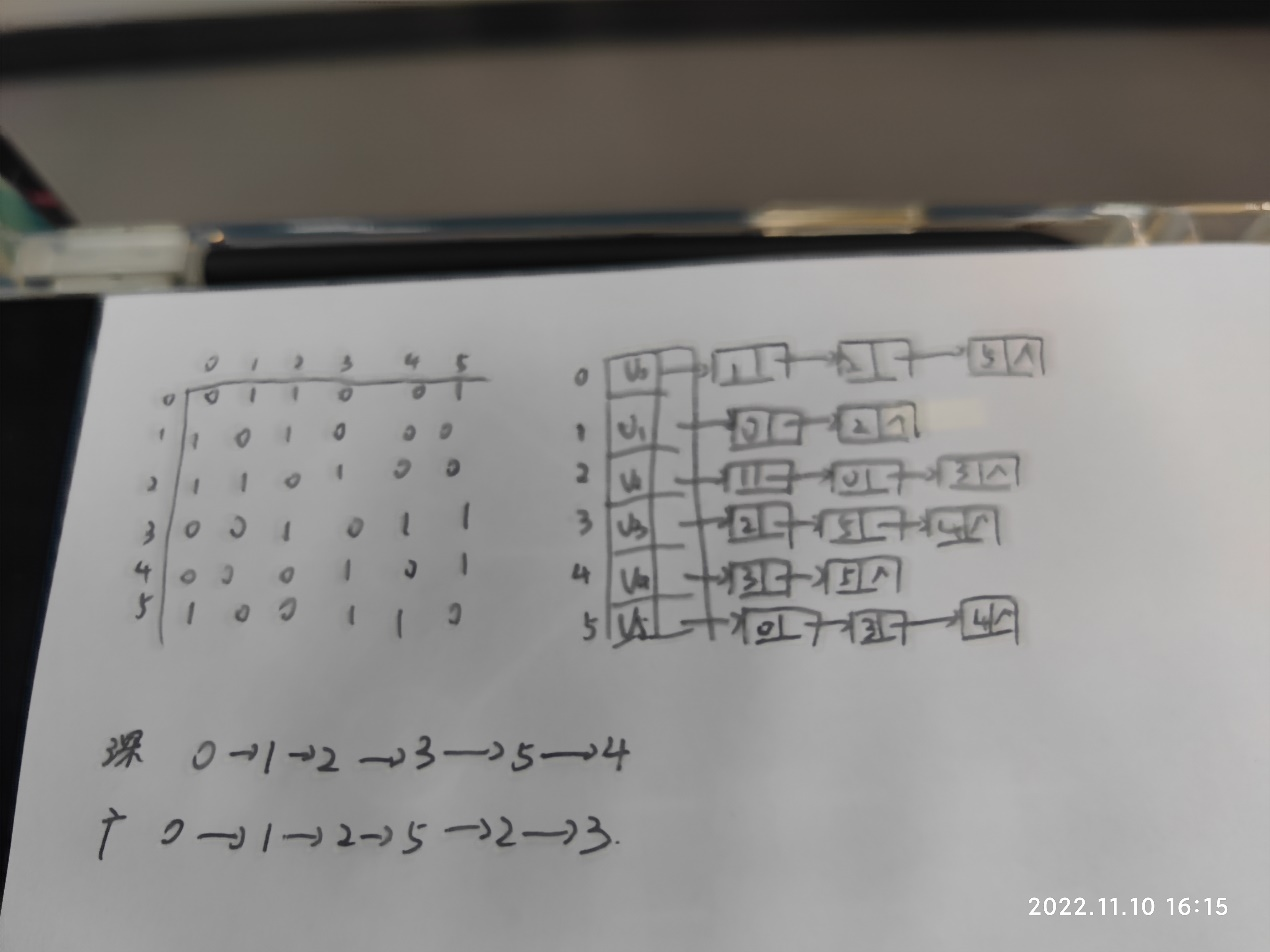 0 1 2 3 4 5
0 0 1 1 0 0 1
1 1 0 1 0 0 0
2 1 1 0 1 0 0
3 0 0 1 0 1 1
4 0 0 0 1 0 1
5 1 0 0 1 1 0
0 V0 → 1 → 2 → 5 ∧
1 V1 → 0 → 2 ∧
2 → 1 → 0 → 3 ∧
3 V3 → 2 → 5 → 4 ∧
4 V4 → 3 → 5 ∧
5 V5 → 0 → 3 → 4 ∧
深 0→1→2→3→5→4
广 0→1→2→5→2→3.
2022.11.10 16:15